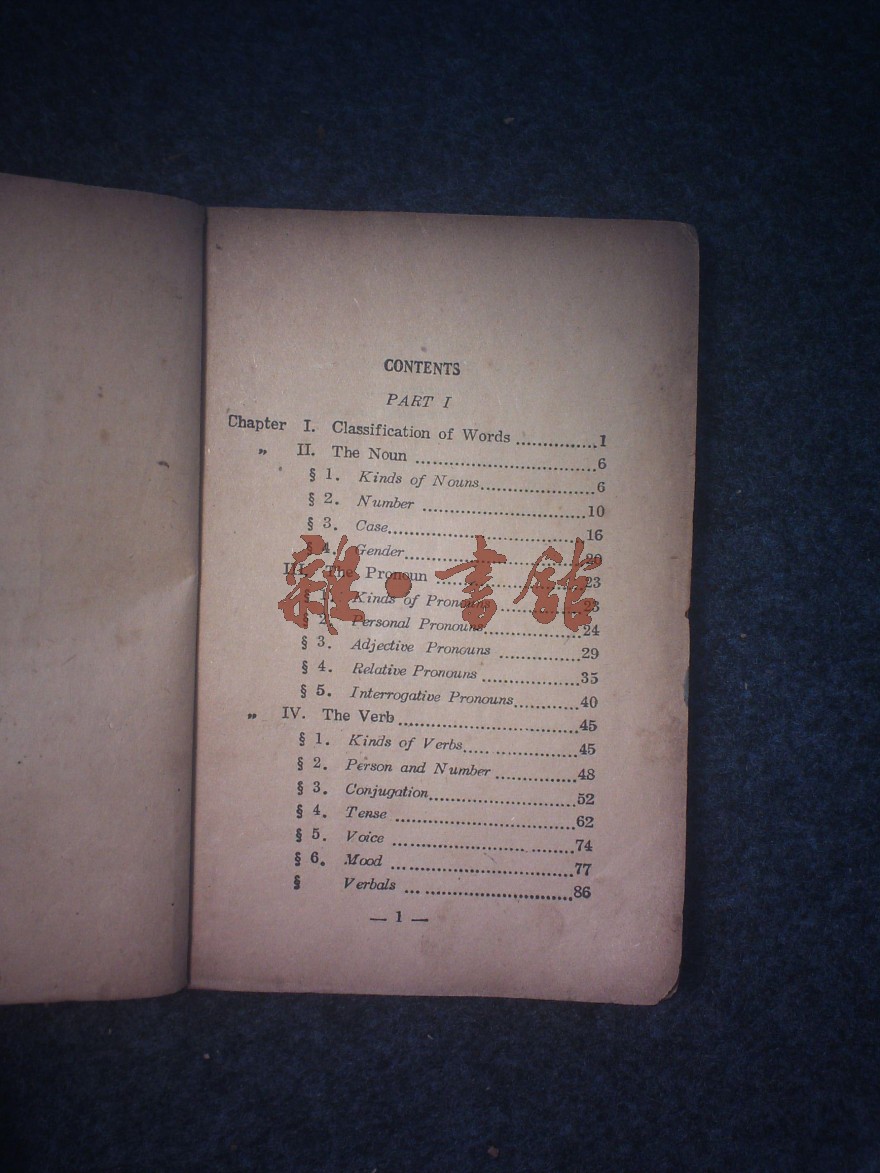 CONTENTS
PART I
Chapter I. Classification of Words ..............1
„ II. The Noun ................................6
§ 1. Kinds of Nouns....................6
§ 2. Number ............................10
§ 3. Case..................................16
§ 4. Gender................................20
III. The Pronoun ............................23
§ 1. Kinds of Pronouns................23
§ 2. Personal Pronouns.................24
§ 3. Adjective Pronouns ..............29
§ 4. Relative Pronouns .................35
§ 5. Interrogative Pronouns...........40
„ IV. The Verb...............................45
§ 1. Kinds of Verbs.....................45
§ 2. Person and Number ..............48
§ 3. Conjugation.........................52
§ 4. Tense ...............................62
§ 5. Voice ...............................74
§ 6. Mood ................................77
§ Verbals ..............................86
— 1 —
雜·書館